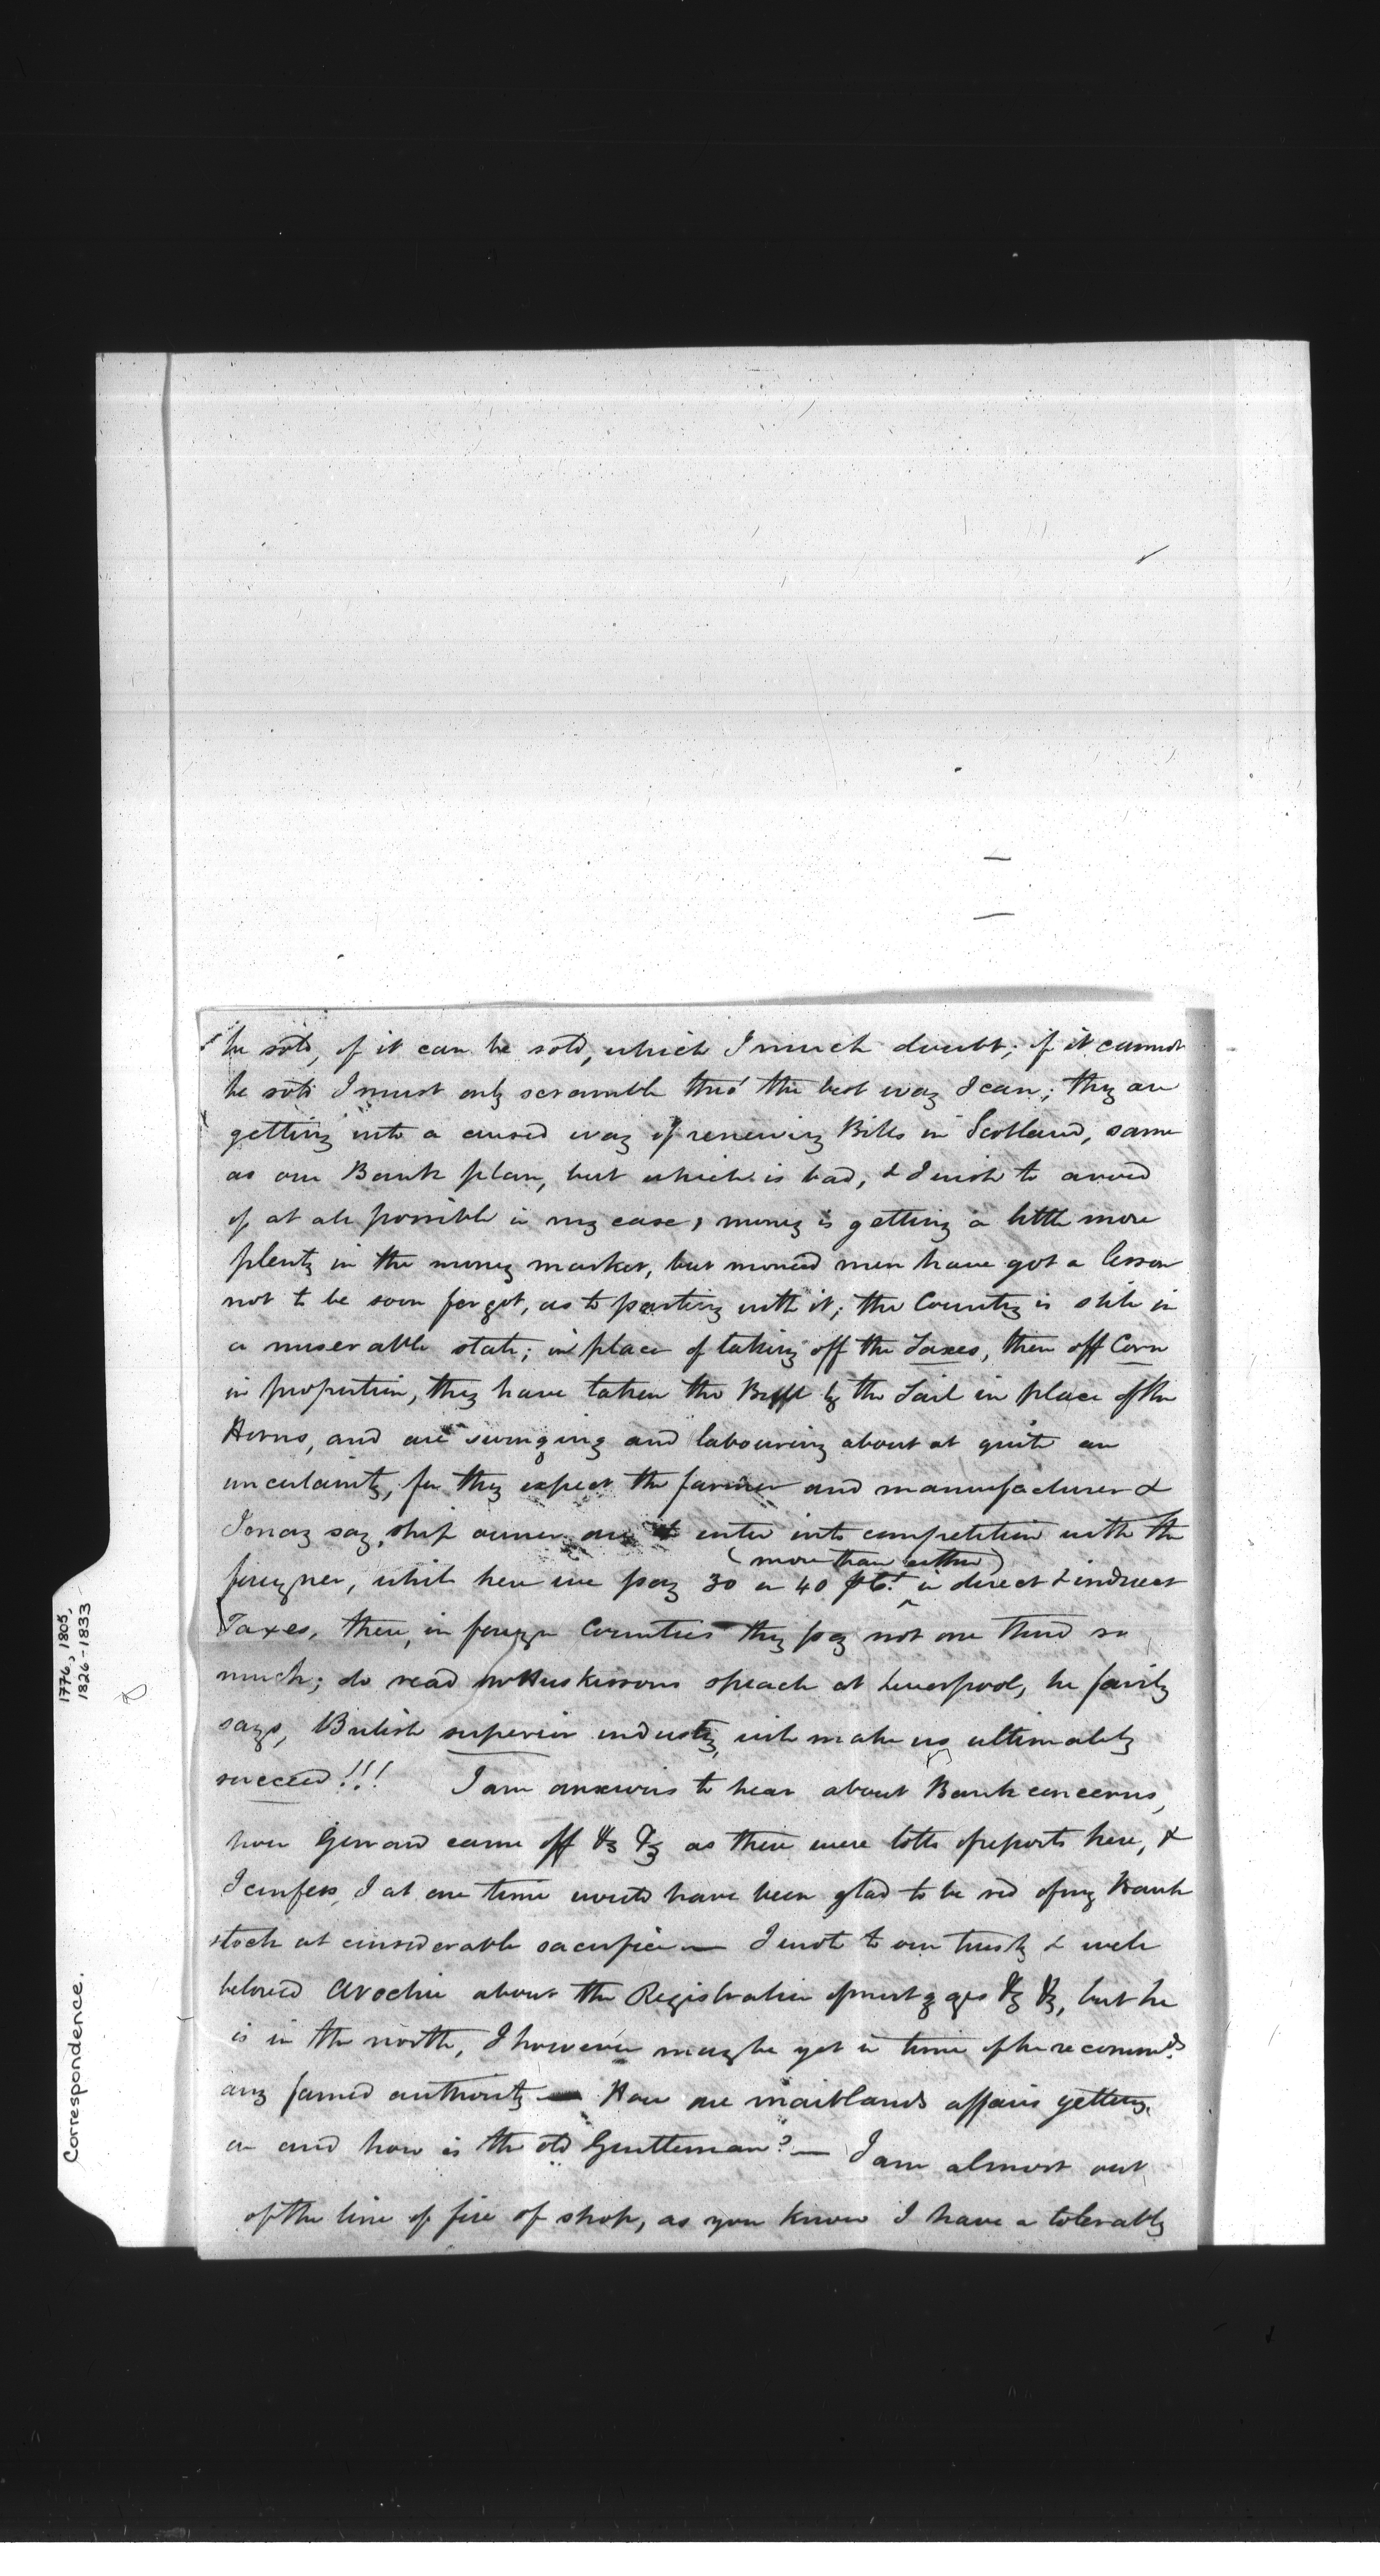 be sold, if it can be sold, which I much doubt; if it cannot
be sold I must only scramble thro' the best way I can; they are
getting into a cursed way of renewing Bills in Scotland, same
as our Bank plan, but which is bad, & I wish to avoid
if at all possible in my case, money is getting a little more
plenty in the money market, but monied men have got a lesson
not to be soon forgot, as to parting with it; the Country is still in
a miserable state; in place of taking off the Taxes, then off Corn
in proportion, they have taken the Bull by the Tail in place of the
Horns, and are swinging and labouring about at quite an
uncertainty, for they expect the farmer and manufacturer &
I may say, ship owner to enter into competition with the
(more than either)
foreigner, while here we pay 30 or 40 pCt. in direct & indirect
Taxes, there, in foreign Countries they pay not one third so
much; do read Mr Huskissons speach at Liverpool, he fairly
says, British superior industry, will make us ultimately
succeed!!! I am anxious to hear about Bank concerns,
how Gerrard came off &c &c as there were lotts of reports here, &
I confess, I at one time would have been glad to be rid of my Bank
stock at considerable sacrifice — I wrote to our trusty & well
beloved Arochie about the Registration of mortgages &c &c, but he
is in the north, I however may be yet in time if he recommds
any famed authority — How are Maitlands affairs getting
on and how is the old Gentleman? — I am almost out
of the line of fire of shop, as you know I have a tolerably
Correspondence.
1776, 1805,
1826-1833